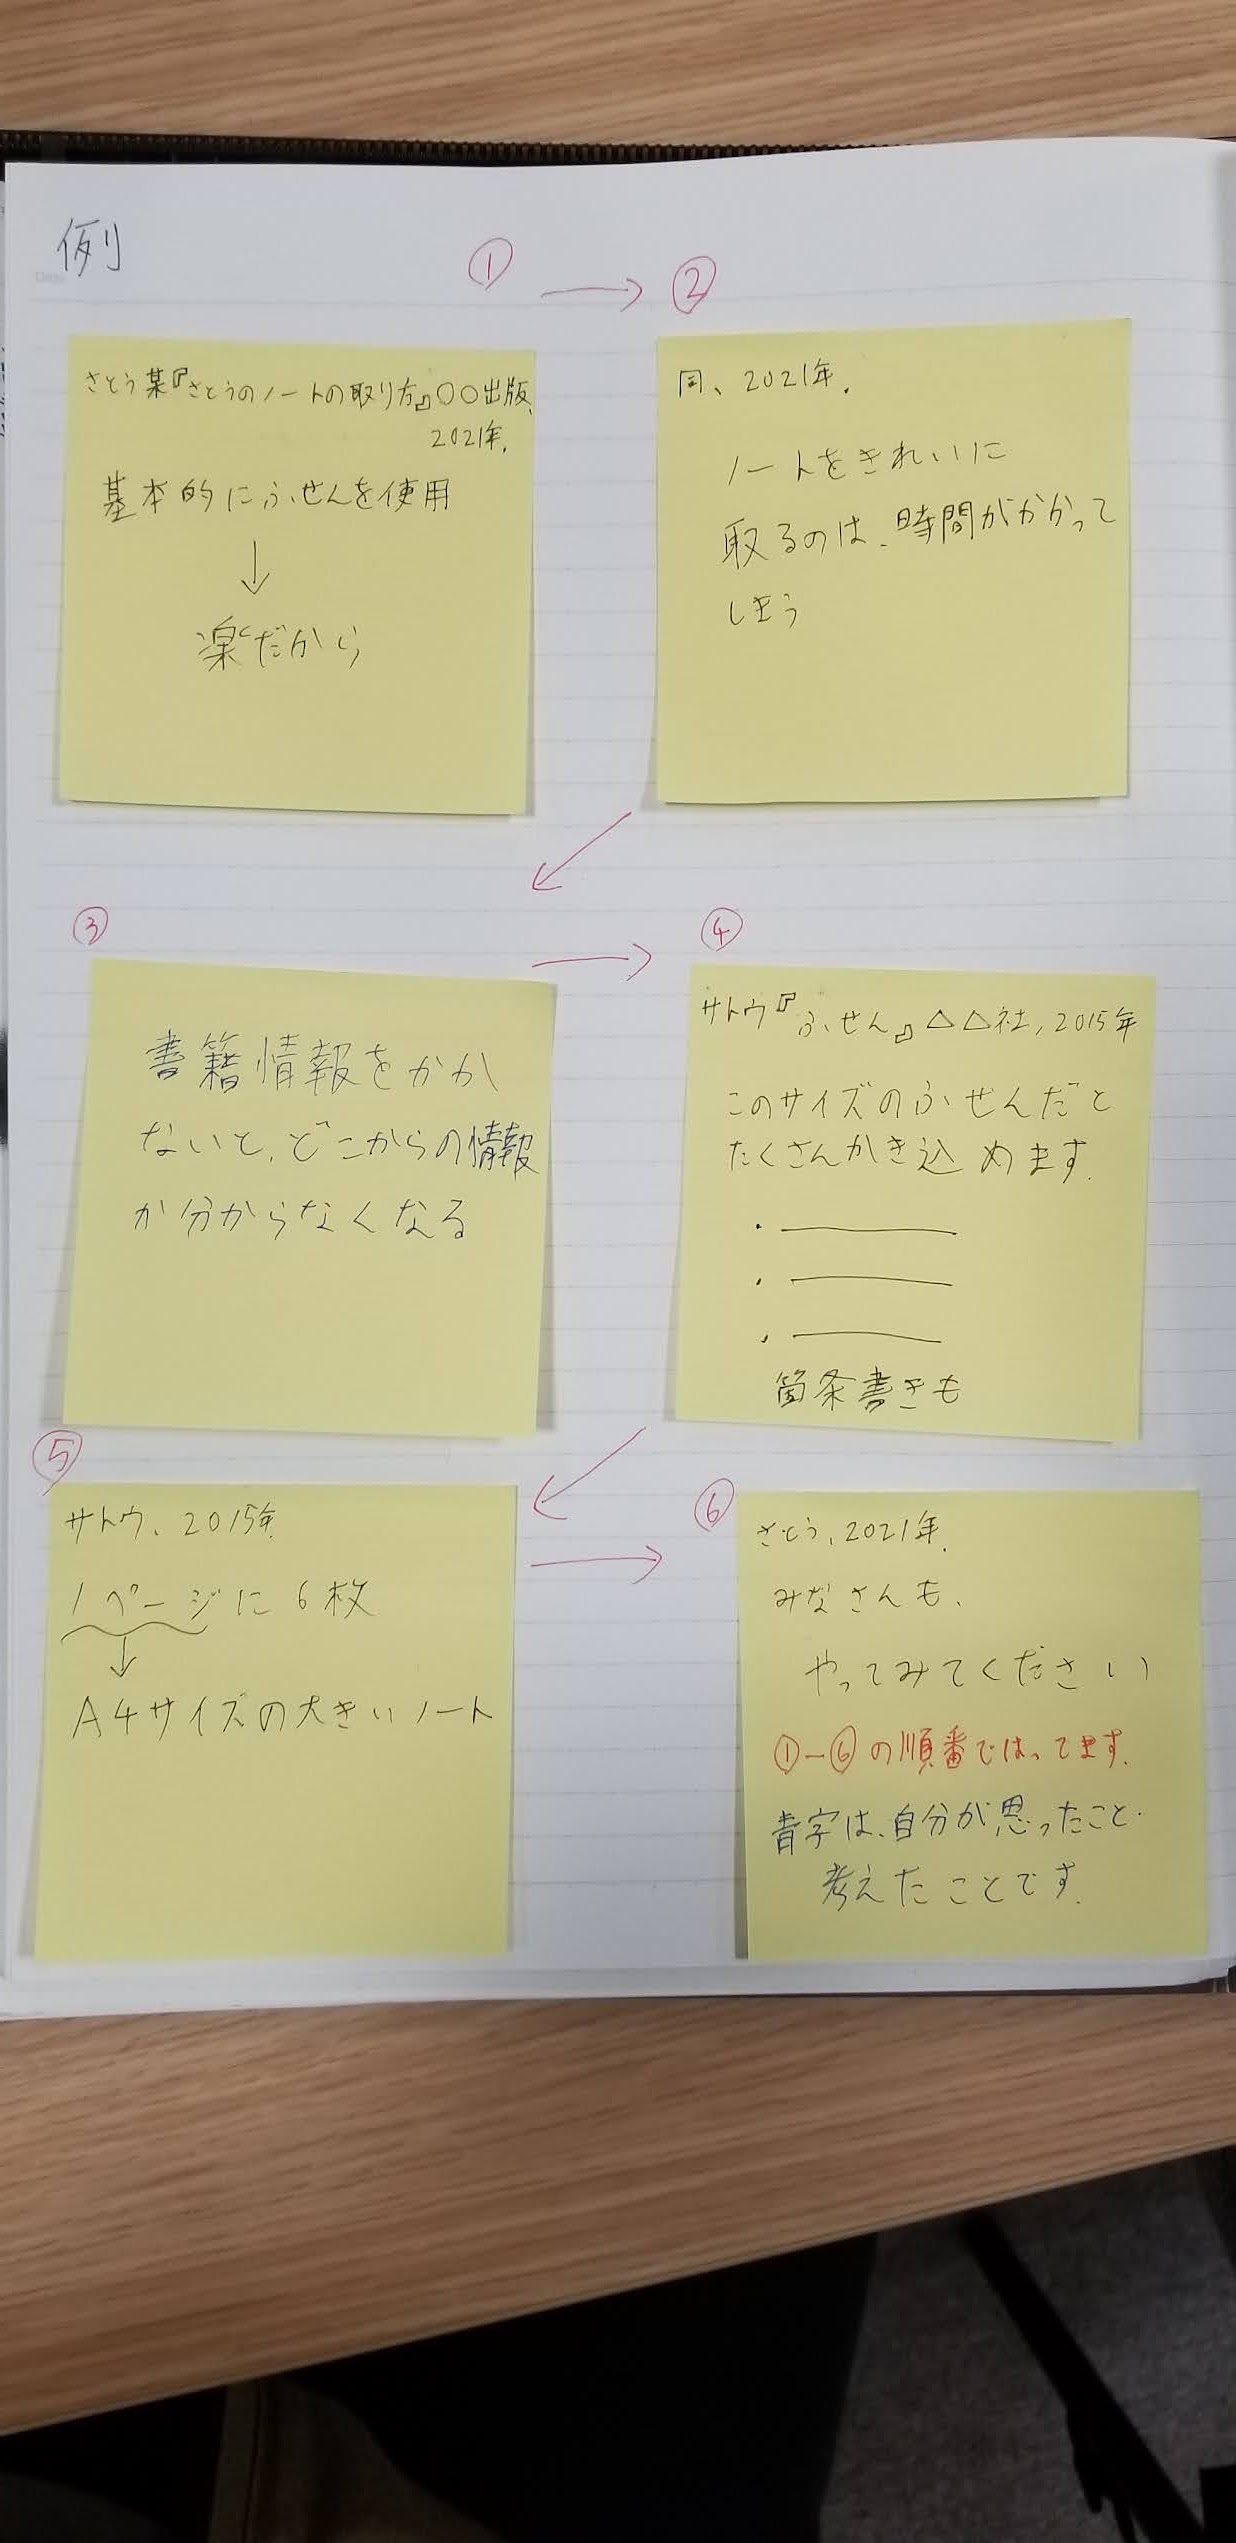 例
① → ②
さとう某『さとうのノートの取り方』○○出版、
2021年.
基本的にふせんを使用
↓
楽だから
同、2021年.
ノートをきれいに
取るのは、時間がかかって
しまう
③
書籍情報をかか
ないと、どこからの情報
か分からなくなる
④
サトウ『ふせん』△△社, 2015年
このサイズのふせんだと
たくさんかき込めます.
・
・
・
箇条書きも
⑤
サトウ、2015年
1ページに6枚
↓
A4サイズの大きいノート
⑥
さとう, 2021年.
みなさんも、
やってみてください
①-⑥の順番ではってます.
青字は、自分が思ったこと・
考えたことです.